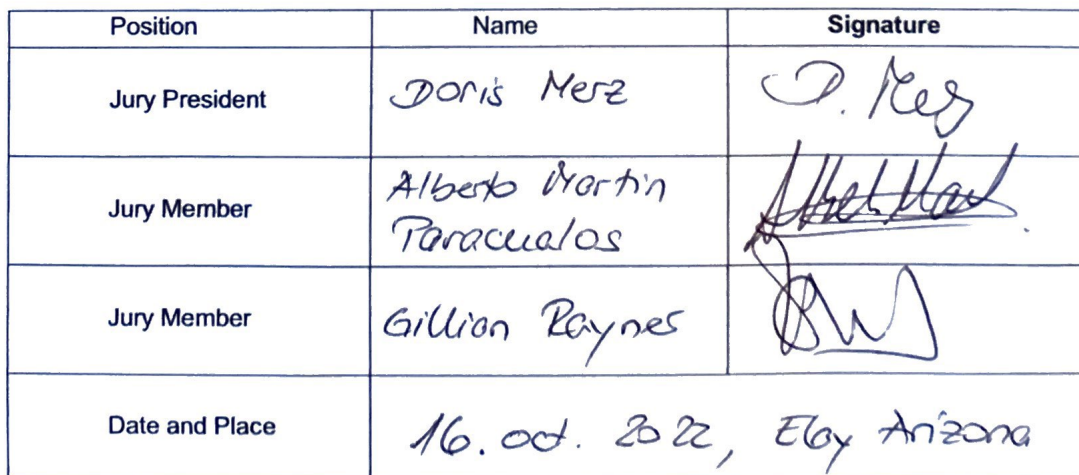 Position Name Signature
Jury President Doris Merz D. Merz
Jury Member Alberto Martin
Paracualos
Jury Member Gillian Rayner
Date and Place 16. oct. 2022, Eloy Arizona